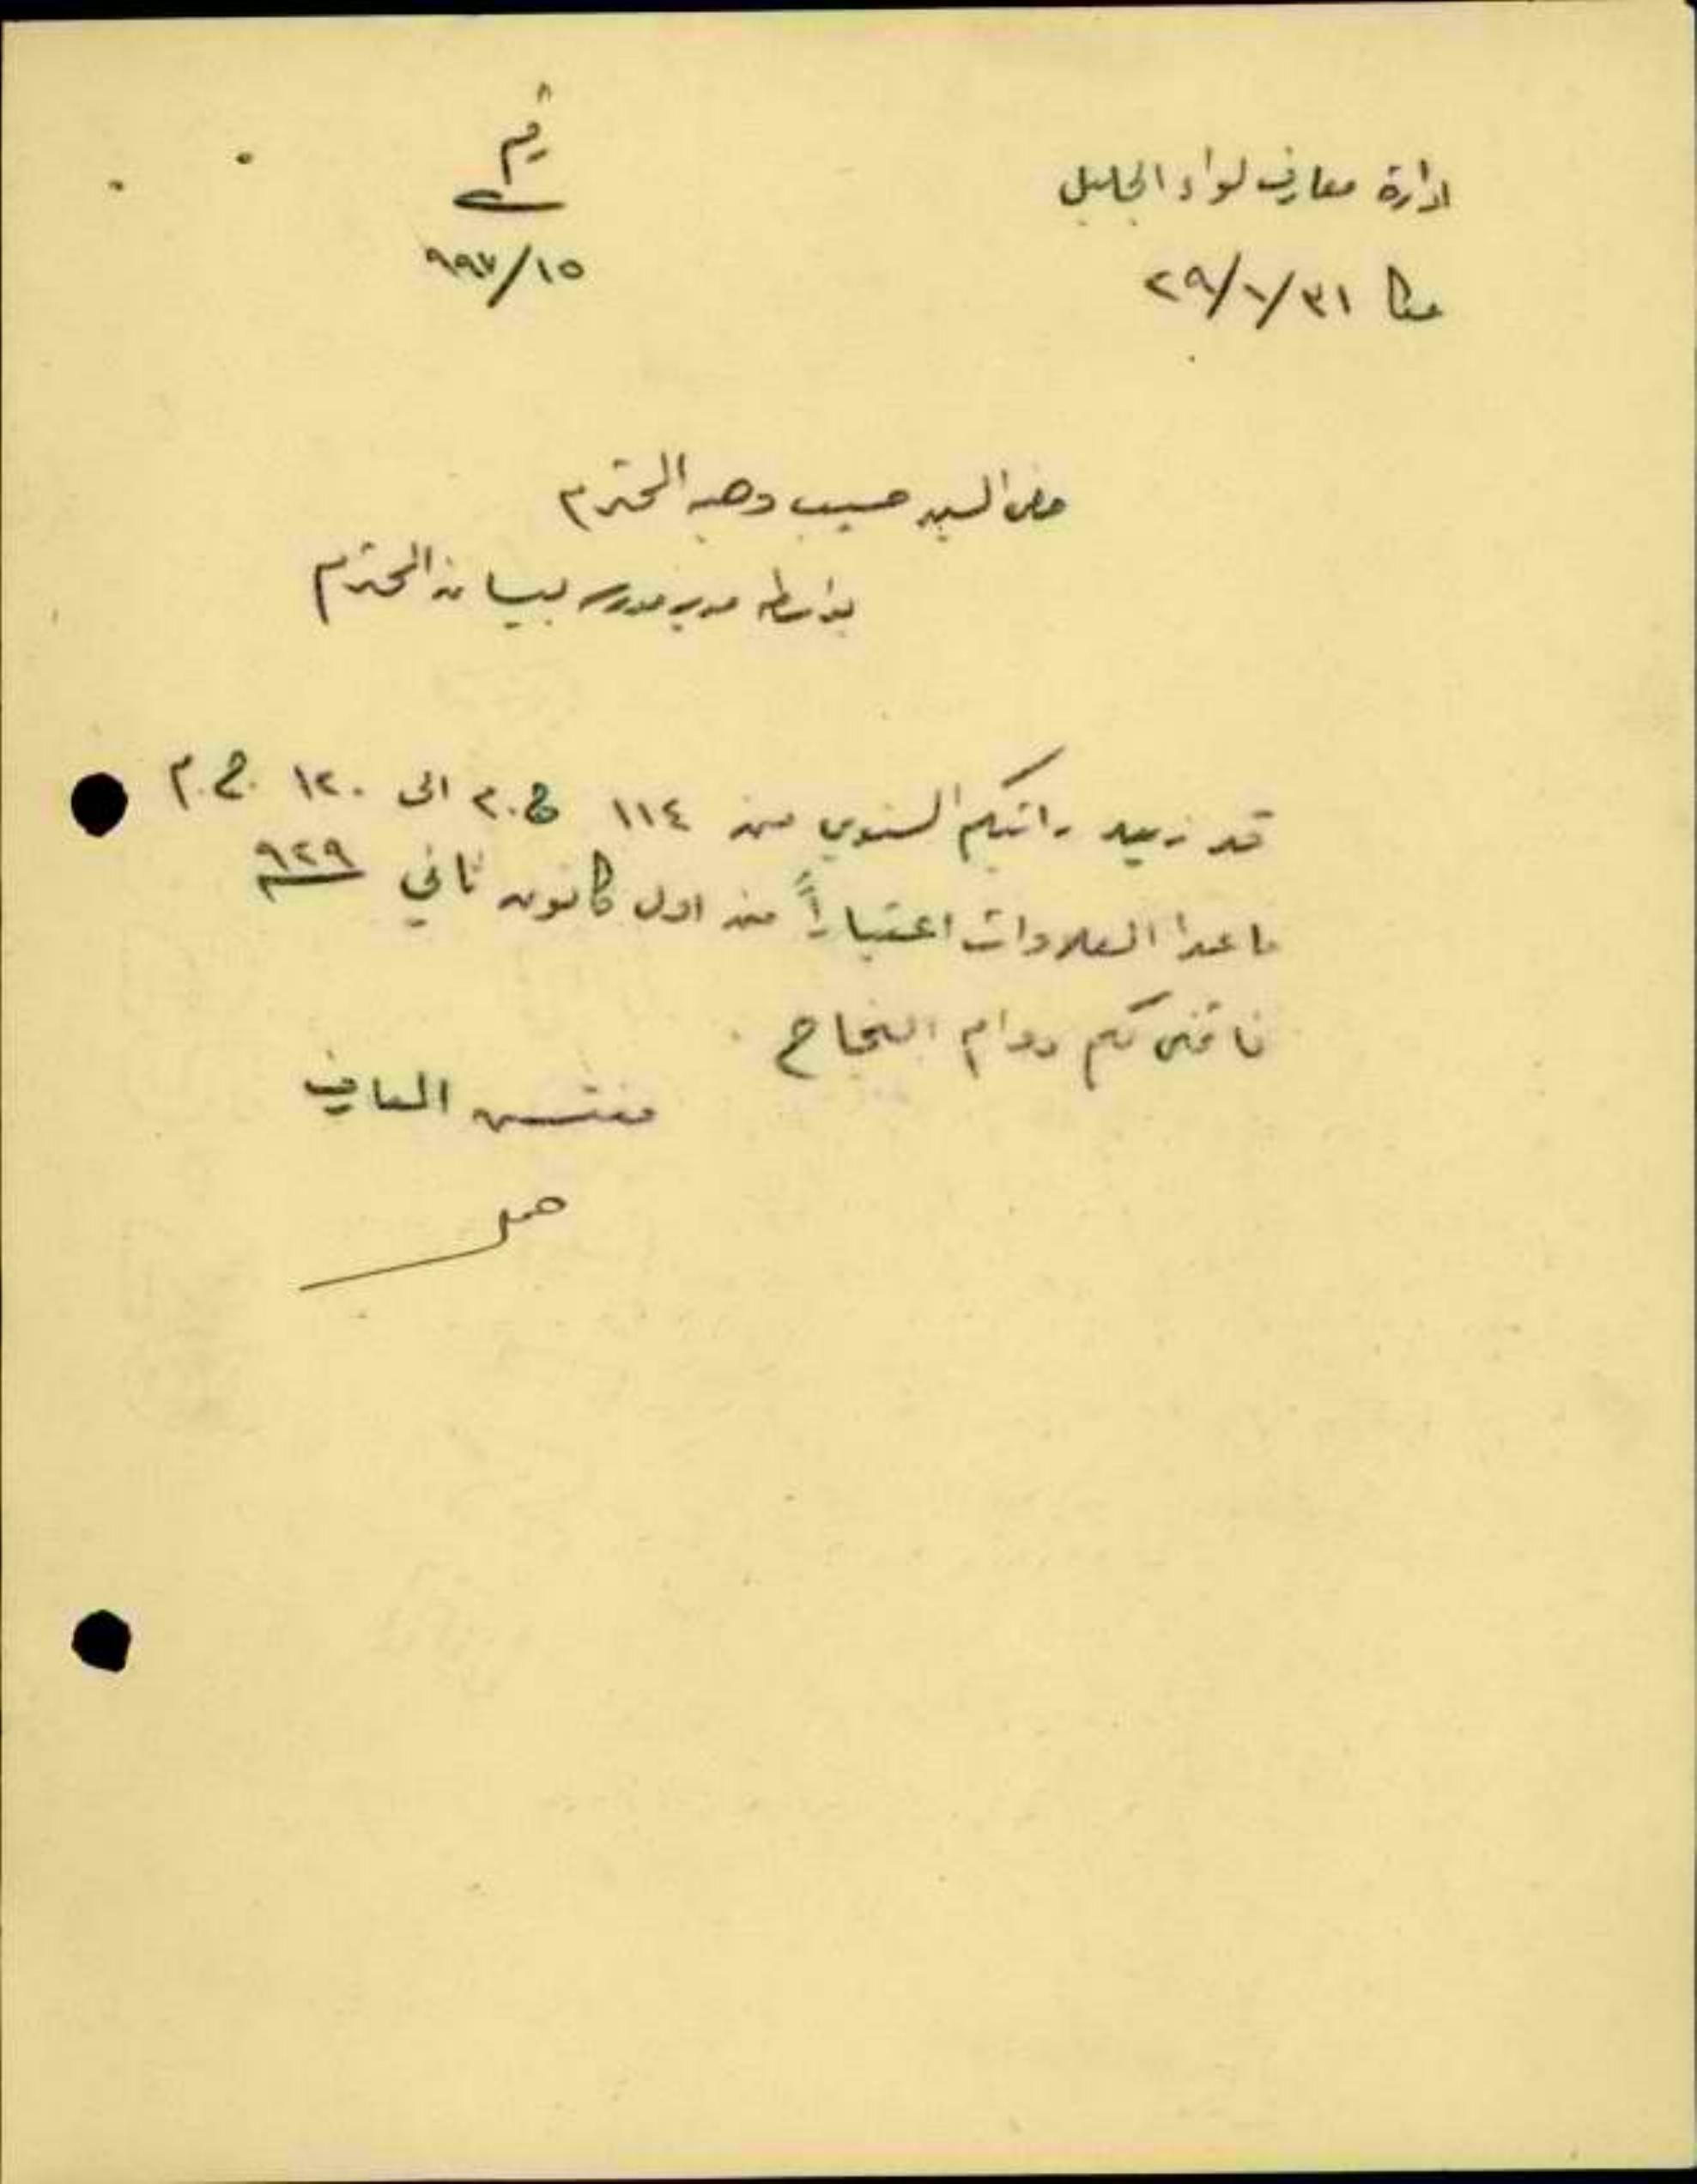 ادارة معارف لواء الجليل
عكا ٣١/١/٢٩
رقم
٩٩٧/١٥
حضرة السيد حبيب وهبه المحترم
بواسطة مدير مدرسة بيسان المحترم
قد زيد راتبكم السنوي من ١١٤ ج.م الى ١٢٠ ج.م
ما عدا العلاوات اعتباراً من اول كانون ثاني ٩٢٩
فاتمنى لكم دوام النجاح
مفتش المعارف